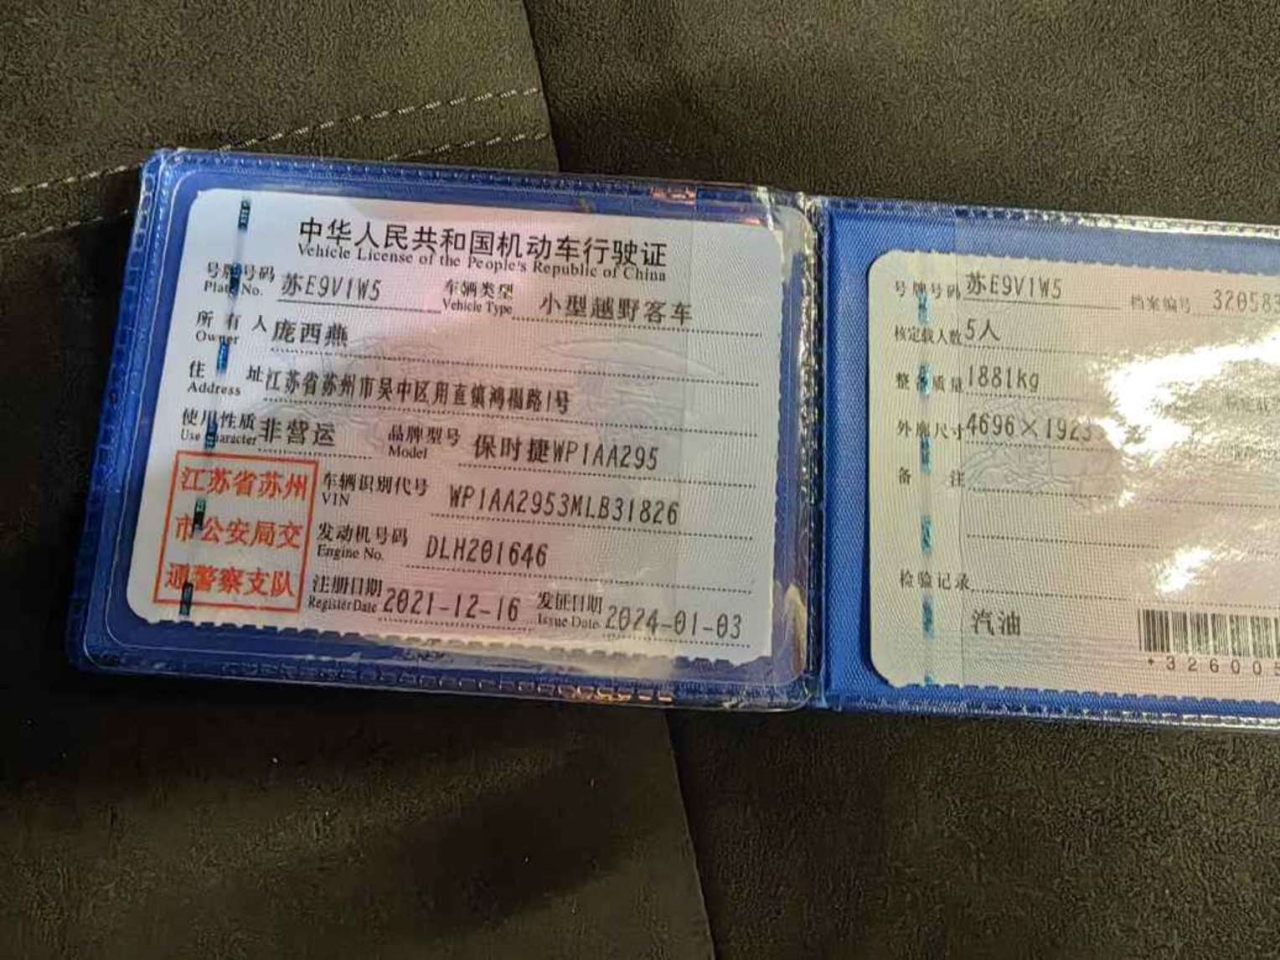 中华人民共和国机动车行驶证
Vehicle License of the People's Republic of China
号牌号码 苏E9V1W5 车辆类型 小型越野客车
Plate No. Vehicle Type
所有人 庞西燕
Owner
住址 江苏省苏州市吴中区甪直镇鸿福路1号
Address
使用性质 非营运 品牌型号 保时捷WP1AA295
Use Character Model
江苏省苏州
市公安局交
通警察支队
车辆识别代号 WP1AA2953MLB31826
VIN
发动机号码 DLH201646
Engine No.
注册日期 2021-12-16 发证日期 2024-01-03
Register Date Issue Date
号牌号码 苏E9V1W5 档案编号 32058
核定载人数 5人
整备质量 1881kg
外廓尺寸 4696×1923
备注
检验记录
汽油
*32600